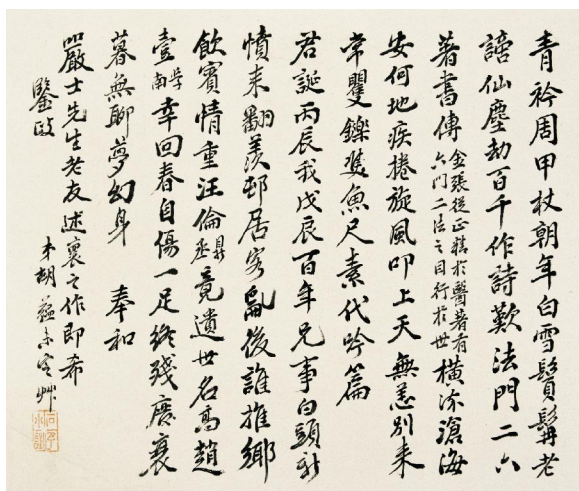 青衿周甲杖朝年白雪鬢髯老
謫仙塵劫百千作詩歎法門二六
著書傳金張從正精於醫著有六門二法之目行於世橫流滄海
安何地疾捲旋風叩上天無恙別来
常矍鑠雙魚尺素代吟篇
君誕丙辰我戊辰百年兄事白頭新
憤来翻羨邨居客亂後誰推鄉
飲賓情重汪倫鼎丞竟遺世名高趙
壹学南幸回春自傷一足終殘廢衰
暮無聊夢幻身 奉和
嚴士先生老友述褱之作即希
鑒政
弟胡蘊未定艸